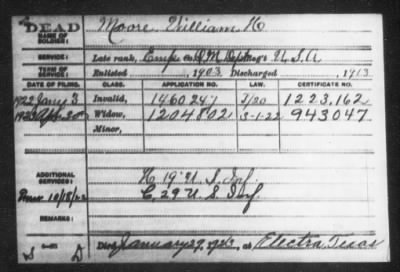 DEAD
NAME OF SOLDIER: Moore, William H
SERVICE: Late rank, Co. Q M Dept Reg't U.S.A
TERM OF SERVICE: Enlisted 1903 Discharged 1913
DATE OF FILING. CLASS. APPLICATION NO. LAW. CERTIFICATE NO.
1922 Jany 3 Invalid, 1460247 2/20 1223,162
1923 Apr 20 Widow, 1204802 3-1-22 943047
Minor,
ADDITIONAL SERVICES: K 19" U. S. Inf.
10/18/22 C. 29 U. S. Inf.
Died January 29, 1923, at Electra, Texas